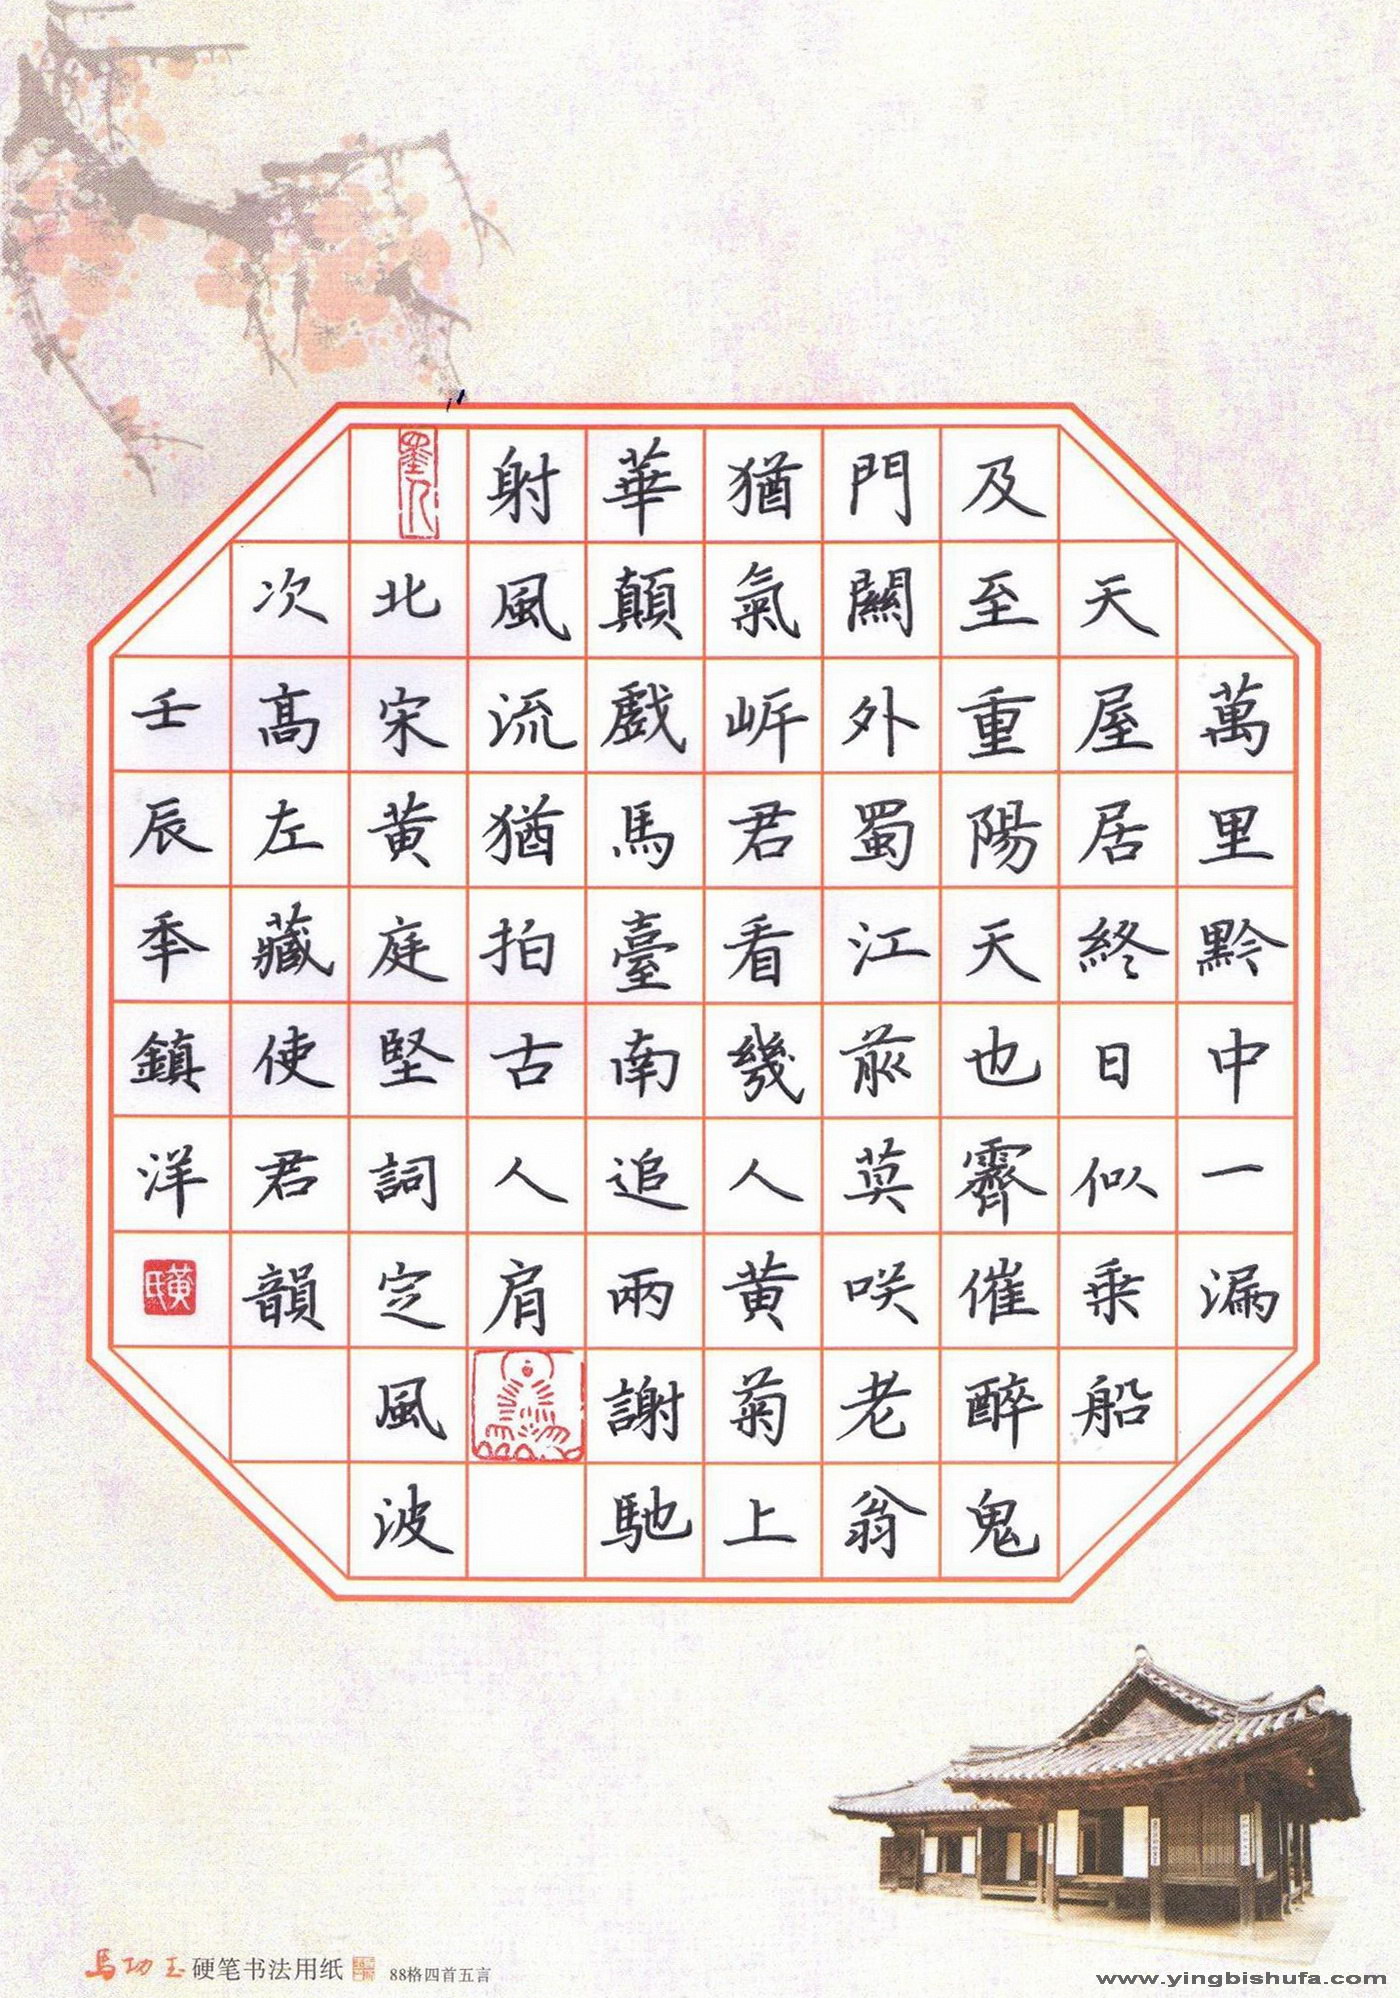 萬里黔中一漏
天屋居終日似乘船
及至重陽天也霽催醉鬼
門關外蜀江前莫咲老翁
猶氣岍君看幾人黄菊上
華顛戲馬臺南追兩謝馳
射風流猶拍古人肩
墨人
北宋黄庭堅詞定風波
次高左藏使君韻
壬辰秊鎮洋
黄氏
馬功玉硬笔书法用纸 88格四首五言
www.yingbishufa.com